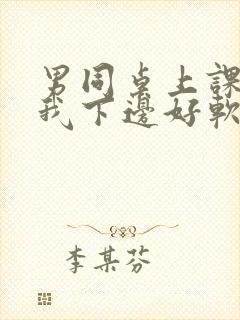 男同桌上課
我下邊好軟
李某芬